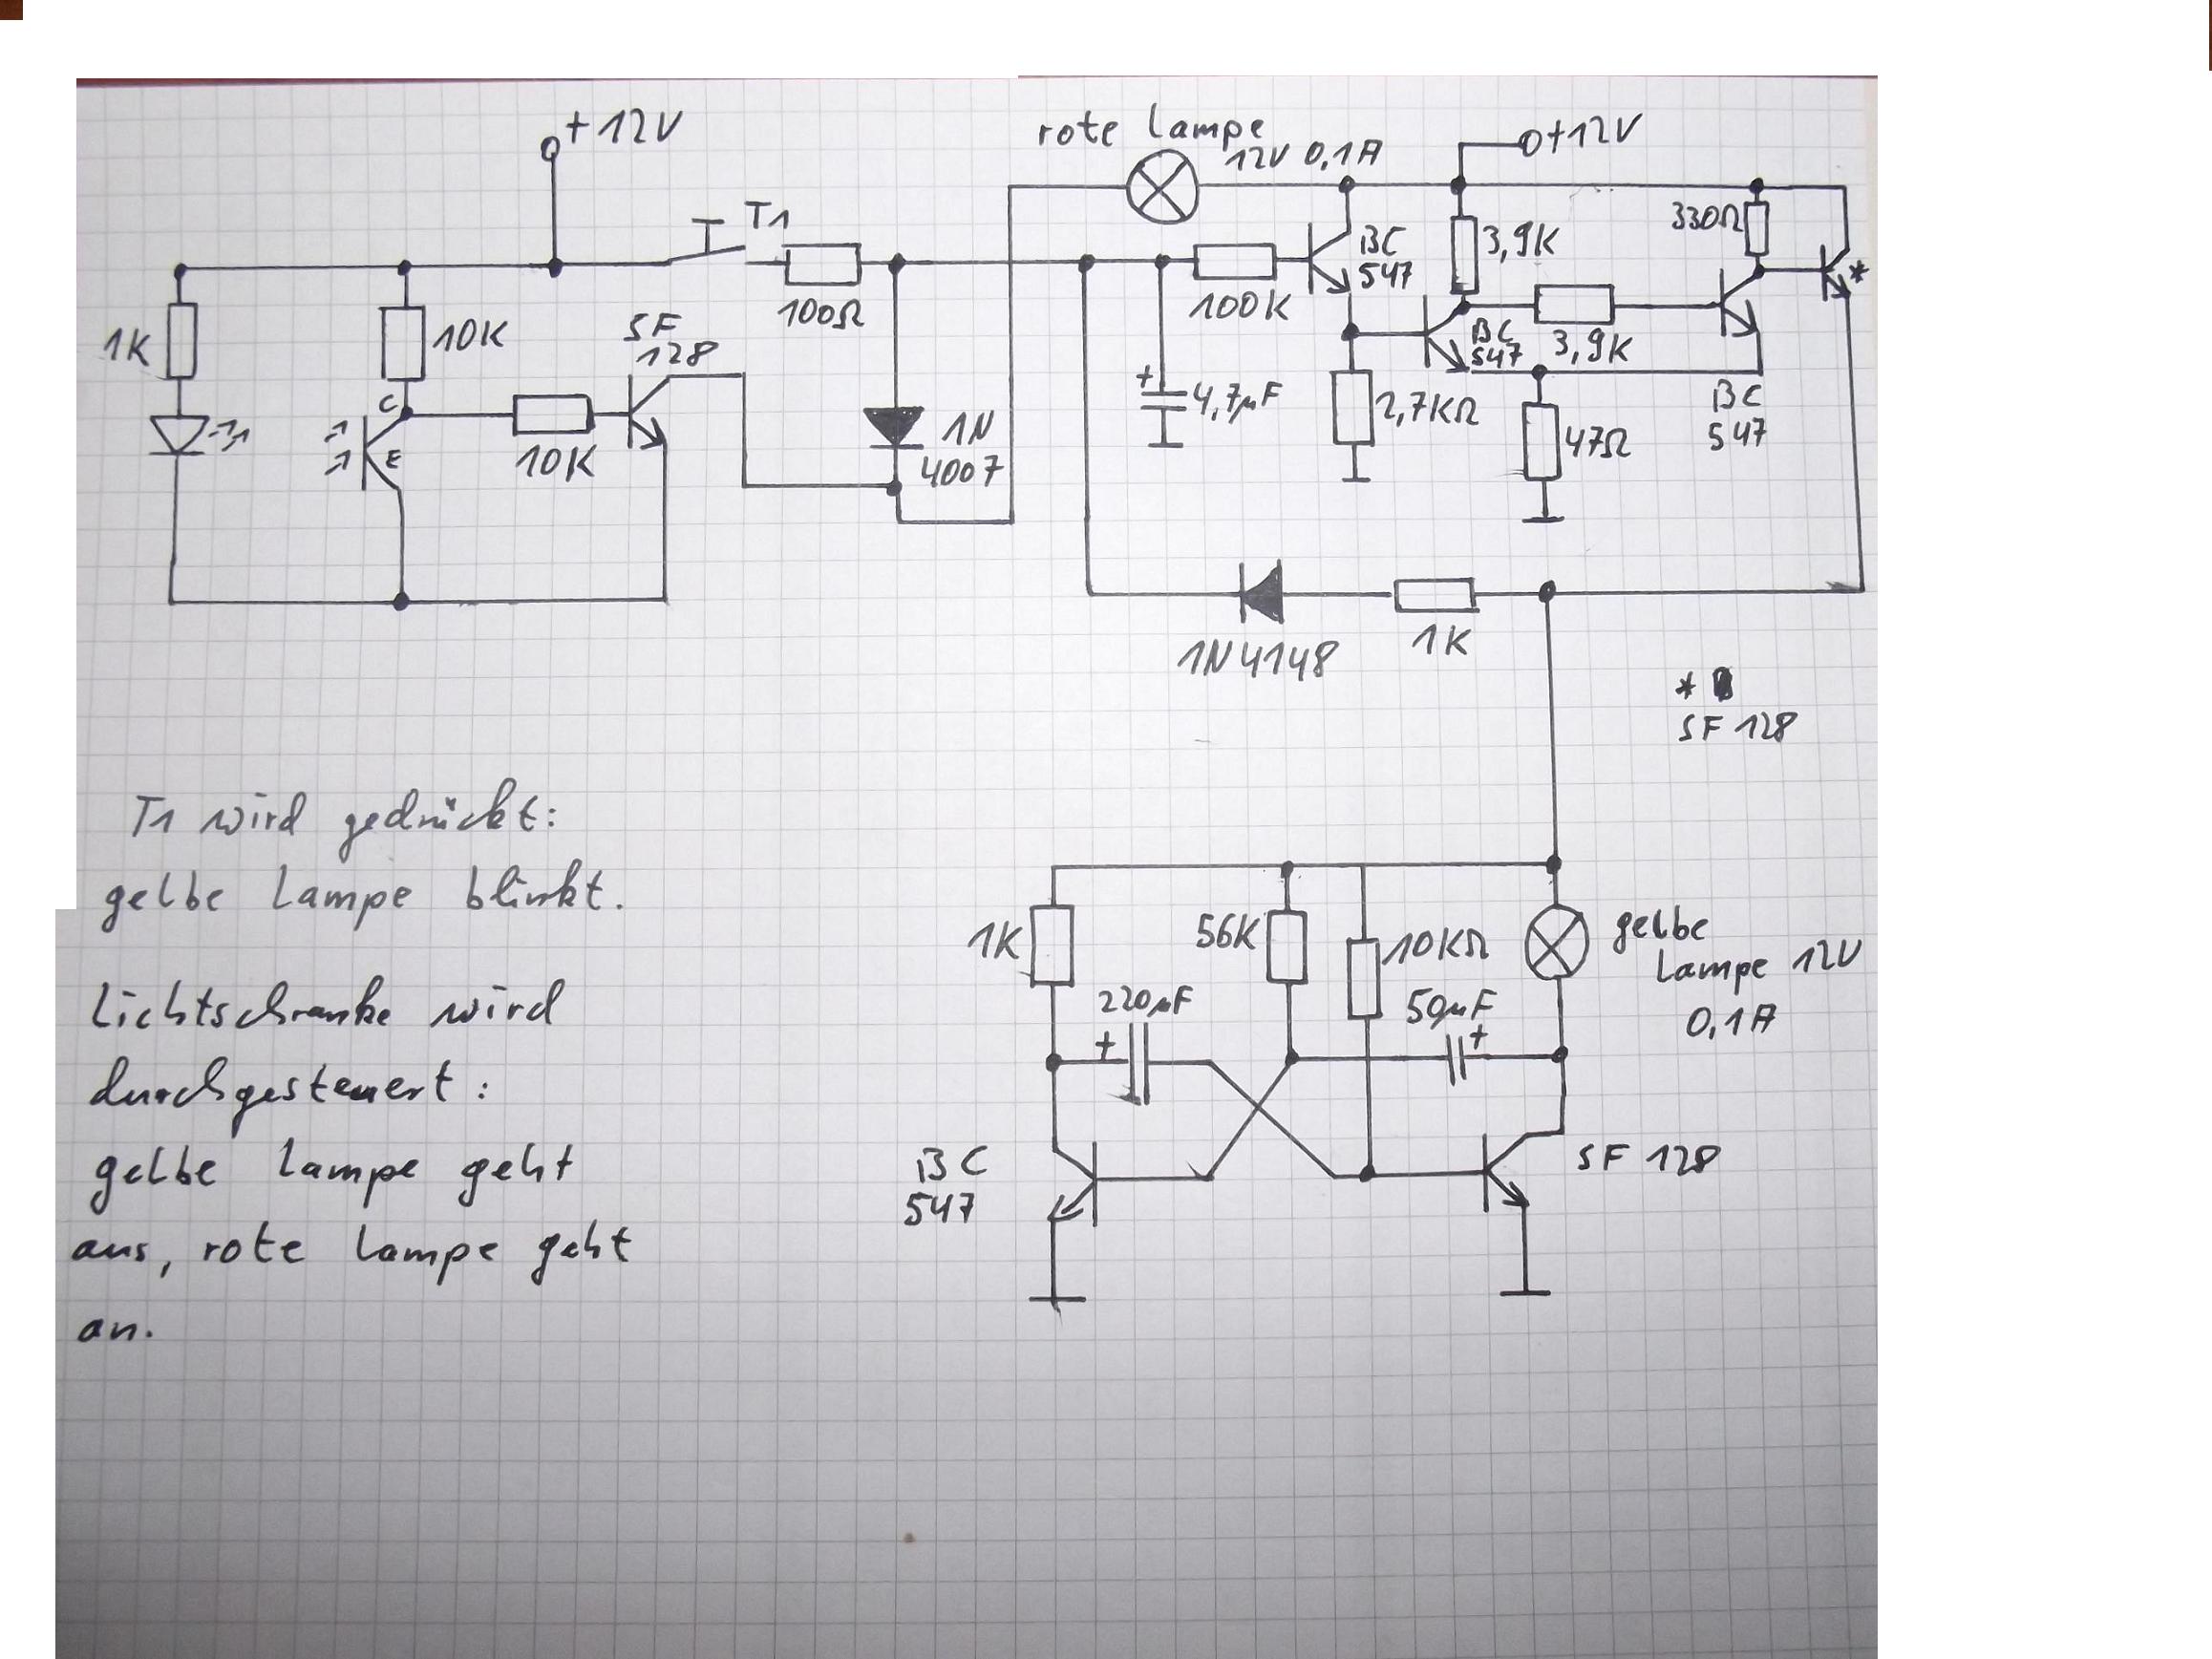 +12V
T1
1K
10K
C
E
10K
SF
128
100Ω
1N
4007
rote Lampe
12V 0,1A
+12V
100K
BC
547
+
4,7µF
2,7KΩ
3,9K
BC
547
3,9K
47Ω
330Ω
BC
547
*
1N4148
1K
*
SF 128
T1 wird gedrückt:
gelbe Lampe blinkt.
Lichtschranke wird
durchgesteuert:
gelbe Lampe geht
aus, rote Lampe geht
an.
1K
56K
10KΩ
gelbe
Lampe 12V
0,1A
220µF
+
50µF
+
BC
547
SF 128